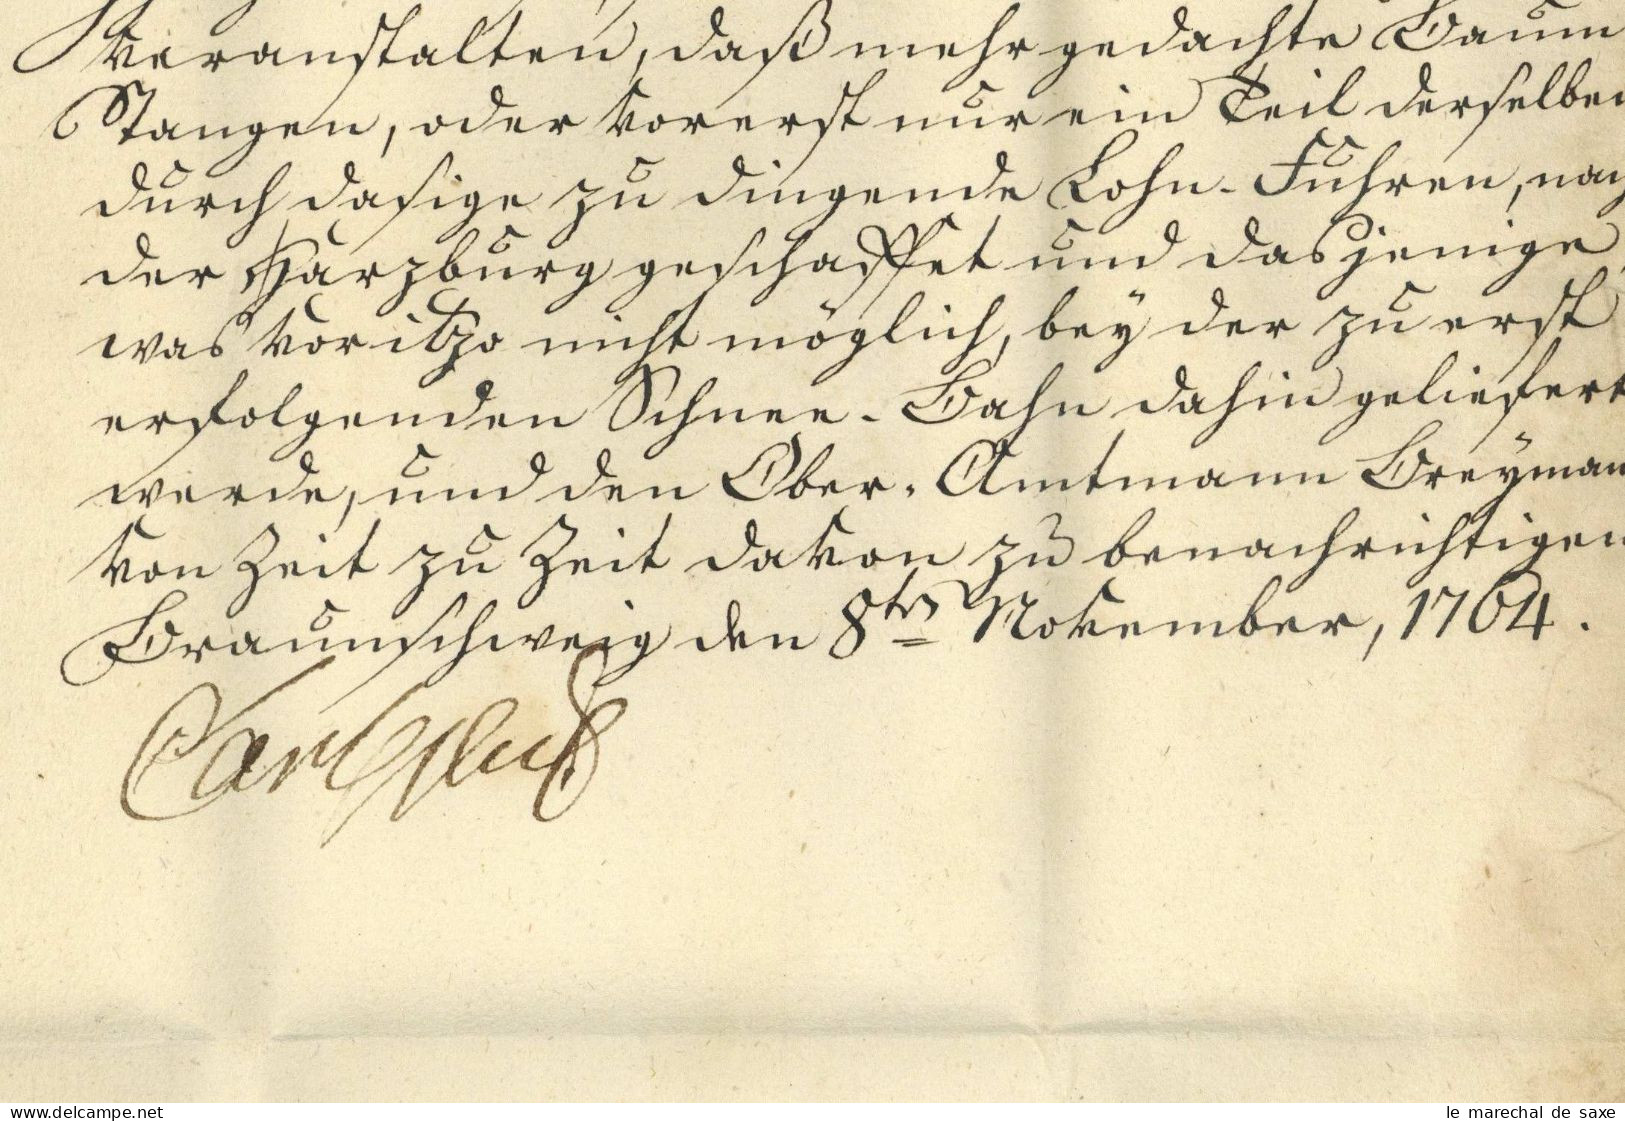 veranstalten, daß mehr gedachte Baum
Stangen, oder vorerst nur ein Teil derselben
durch dasige zu dingende Lohn-Fuhren, nach
der Harzburg geschaffet und dasjenige,
was vor itzo nicht möglich, bey der zu erst
erfolgenden Schnee-Bahn dahin geliefert
werde, und den Ober-Amtmann Breyman
von Zeit zu Zeit davon zu benachrichtigen
Braunschweig den 8ten November, 1764.
Carl
www.delcampe.net
le marechal de saxe